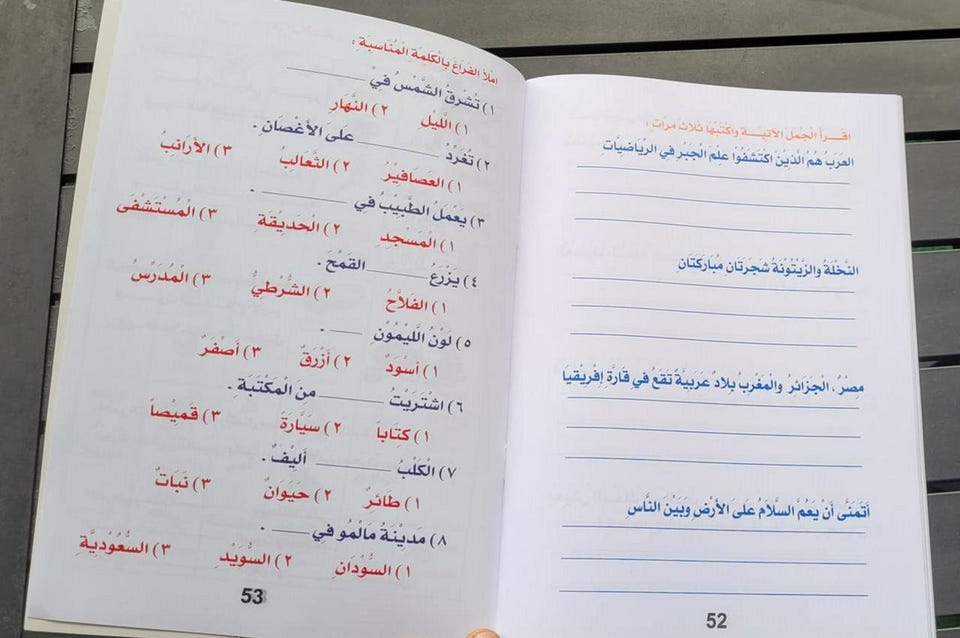 اقرأ الجمل الآتية واكتبها ثلاث مرات :
العرب هُمُ الذينَ اكتَشَفُوْا عِلمَ الجَبْر في الرياضيَّات
النَّخْلَةُ والزَّيْتُونَةُ شَجَرَتَانِ مُبَارَكَتَانِ
مِصْرُ ، الْجَزَائرُ والْمَغْرِبُ بِلادٌ عَرَبيَّةٌ تَقَعُ في قَارَّة إفْريقْيَا
أتَمَنَّى أنْ يَعُمَّ السَّلاَمُ عَلىَ الأرْضِ وَبَيْنَ النَّاسِ
52
املأ الفَرَاغَ بِالْكَلِمَةِ الْمُنَاسَبَة :
١) تُشْرِقُ الشَّمْسُ فِيْ ________
١) اللَّيْلِ ٢) النَّهَارِ
٢) تُغَرِّدُ ________ عَلىَ الأغْصَان .
١) العَصَافيْرُ ٢) الثَّعَالبُ ٣) الأرَانبُ
٣) يَعْمَلُ الطَّبيْبُ في ________ .
١) الْمَسْجدِ ٢) الْحَديْقَةِ ٣) الْمُسْتَشْفَى
٤) يَزْرَعُ ________ القَمْحَ .
١) الفَلاَّحُ ٢) الشُّرْطيُّ ٣) الْمُدَرِّسُ
٥) لَوْنُ اللَّيْمُوْن ________ .
١) أسْوَدُ ٢) أزْرَقٌ ٣) أصْفَرٌ
٦) اشْتَرَيْتُ ________ مِنَ الْمَكْتَبَة .
١) كِتَاباً ٢) سَيَّارَةً ٣) قَمِيْصاً
٧) الْكَلْبُ ________ أَلِيْفٌ .
١) طَائرٌ ٢) حَيَوَانٌ ٣) نَبَاتٌ
٨) مَديْنَةُ مَالْمُو فِي ________ .
١) السُّوْدَانِ ٢) السُّوَيْدِ ٣) السُّعُوْديَّةِ
53